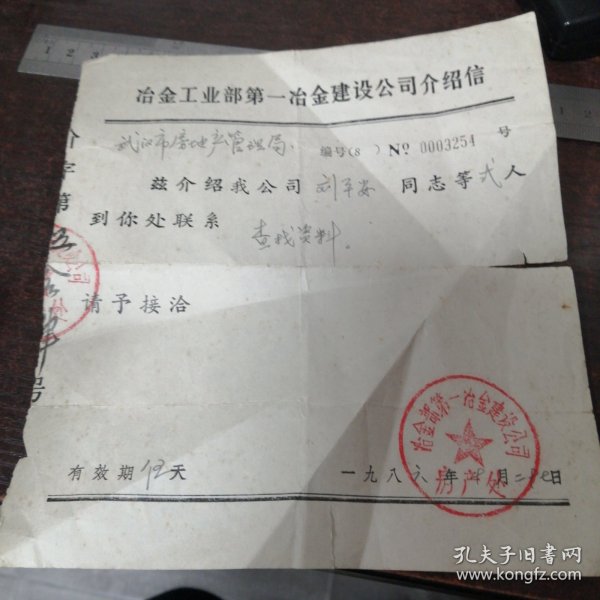 冶金工业部第一冶金建设公司介绍信
武汉市房地产管理局:
编号(8 ) № 0003254 号
兹介绍我公司 刘平安 同志等 弍 人
到你处联系
查找资料。
请予接洽
有效期 伍 天
一九八六年 月二 日
介字第五八 号
冶金部第一冶金建设公司
房产处
孔夫子旧书网
www.kongfz.com
1 2 3